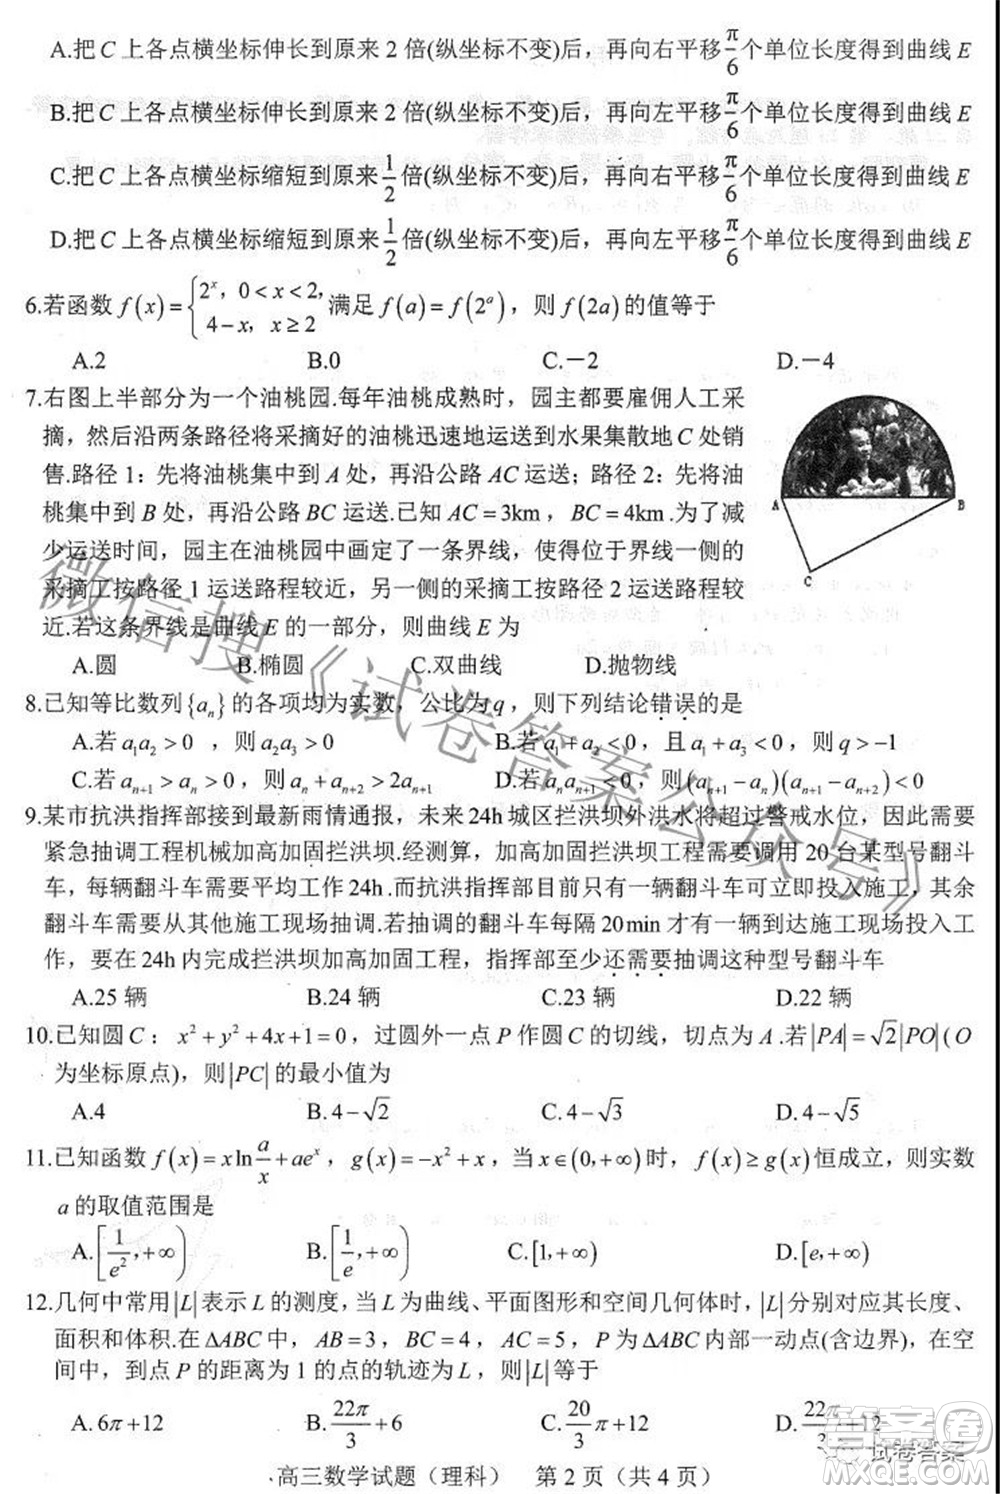 A.把 C 上各点横坐标伸长到原来 2 倍(纵坐标不变)后，再向右平移π/6个单位长度得到曲线 E
B.把 C 上各点横坐标伸长到原来 2 倍(纵坐标不变)后，再向左平移π/6个单位长度得到曲线 E
C.把 C 上各点横坐标缩短到原来1/2倍(纵坐标不变)后，再向右平移π/6个单位长度得到曲线 E
D.把 C 上各点横坐标缩短到原来1/2倍(纵坐标不变)后，再向左平移π/6个单位长度得到曲线 E
6.若函数 f(x)={2^x，0<x<2，4-x，x≥2 满足 f(a)=f(2^a)，则 f(2a) 的值等于
A.2 B.0 C.－2 D.－4
7.右图上半部分为一个油桃园.每年油桃成熟时，园主都要雇佣人工采
摘，然后沿两条路径将采摘好的油桃迅速地运送到水果集散地 C 处销
售.路径 1：先将油桃集中到 A 处，再沿公路 AC 运送；路径 2：先将油
桃集中到 B 处，再沿公路 BC 运送.已知 AC=3km，BC=4km.为了减
少运送时间，园主在油桃园中画定了一条界线，使得位于界线一侧的
采摘工按路径 1 运送路程较近，另一侧的采摘工按路径 2 运送路程较
近.若这条界线是曲线 E 的一部分，则曲线 E 为
A B
C
A.圆 B.椭圆 C.双曲线 D.抛物线
8.已知等比数列{a_n}的各项均为实数，公比为 q，则下列结论错误的是
A.若 a_1a_2>0 ，则 a_2a_3>0 B.若 a_1+a_2<0，且 a_1+a_3<0，则 q>-1
C.若 a_{n+1}>a_n>0，则 a_n+a_{n+2}>2a_{n+1} D.若 a_na_{n+1}<0，则(a_{n+1}-a_n)(a_{n+1}-a_{n+2})<0
9.某市抗洪指挥部接到最新雨情通报，未来 24h 城区拦洪坝外洪水将超过警戒水位，因此需要
紧急抽调工程机械加高加固拦洪坝.经测算，加高加固拦洪坝工程需要调用 20 台某型号翻斗
车，每辆翻斗车需要平均工作 24h.而抗洪指挥部目前只有一辆翻斗车可立即投入施工，其余
翻斗车需要从其他施工现场抽调.若抽调的翻斗车每隔 20min 才有一辆到达施工现场投入工
作，要在 24h 内完成拦洪坝加高加固工程，指挥部至少还需要抽调这种型号翻斗车
A.25 辆 B.24 辆 C.23 辆 D.22 辆
10.已知圆 C：x²+y²+4x+1=0，过圆外一点 P 作圆 C 的切线，切点为 A.若|PA|=√2|PO|(O
为坐标原点)，则|PC|的最小值为
A.4 B.4-√2 C.4-√3 D.4-√5
11.已知函数 f(x)=xln(a/x)+ae^x，g(x)=-x²+x，当 x∈(0,+∞)时，f(x)≥g(x)恒成立，则实数
a 的取值范围是
A.[1/e²,+∞) B.[1/e,+∞) C.[1,+∞) D.[e,+∞)
12.几何中常用|L|表示 L 的测度，当 L 为曲线、平面图形和空间几何体时，|L|分别对应其长度、
面积和体积.在ΔABC 中，AB=3，BC=4，AC=5，P 为ΔABC 内部一动点(含边界)，在空
间中，到点 P 的距离为 1 的点的轨迹为 L，则|L|等于
A.6π+12 B.22π/3+6 C.20/3π+12 D.22π/3+12
高三数学试题（理科） 第 2 页（共 4 页）
微信搜《试卷答案公众号》
答案圈
试卷答案